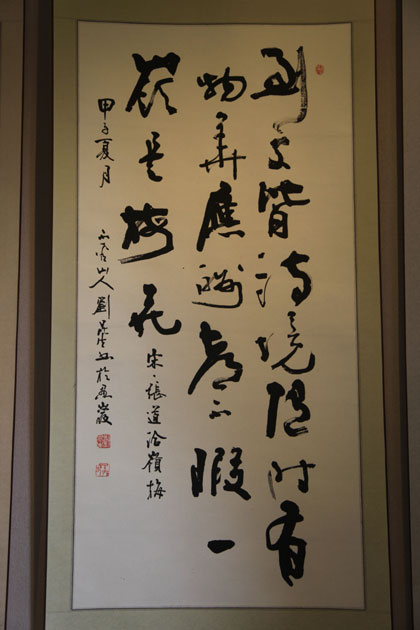 到处皆诗境随时有
物華應酬都不暇一
嶺是梅花 宋·張道洽嶺梅
甲子夏月 山人劉 書於